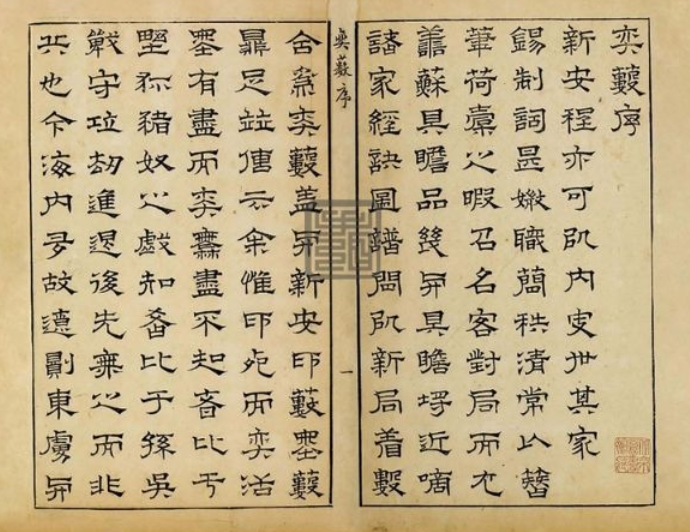 奕藪序
新安程亦可以內史世其家
錫制詞是職簡秩清常以簪
筆荷橐之暇召名客對局而尤
善蘇具瞻品幾與具瞻埒近
諸家經訣圖譜間以新局着數
奕藪序
一
爲奕藪蓋與新安印藪墨藪
鼎足竝傳云余惟印死而奕活
墨有盡而奕無盡不知者比于
豬奴之戲知者比于孫吳
戰守攻劫進退後先無之而非
兵也今海內多故遼東虜與